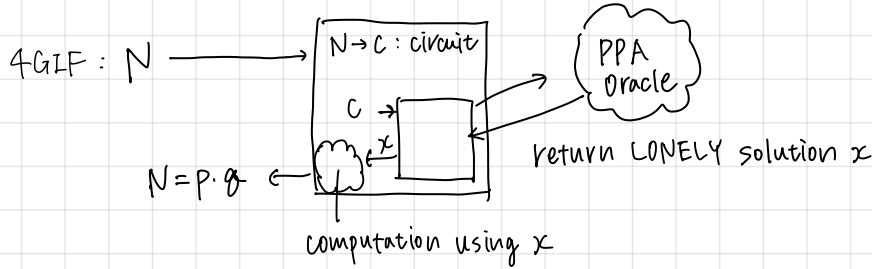 4GIF : N
N → C : circuit
PPA
Oracle
C →
x
return LONELY solution x
N = p · q
computation using x